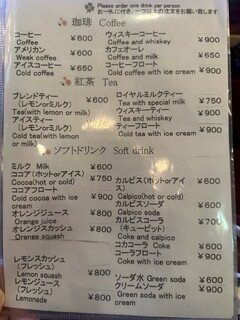 Please order one drink per person
お一人に付き、一つ以上の注文をお願い致します
珈琲 Coffee
コーヒー ¥600
Coffee
アメリカン ¥600
Weak coffee
アイスコーヒー ¥650
Cold coffee
ウィスキーコーヒー ¥900
Coffee and whiskey
カフェオーレ ¥650
Coffee and milk
コーヒーフロート ¥900
Cold coffee with ice cream
紅茶 Tea
ブレンドティー ¥600
(レモンorミルク)
Tea(with lemon or milk)
アイスティー ¥650
(レモンorミルク)
Cold tea(with lemon or milk)
ロイヤルミルクティー
Tea with special milk ¥750
ウィスキーティー ¥900
Tea and whiskey
ティーフロート ¥900
Cold tea with ice cream
ソフトドリンク Soft drink
ミルク Milk ¥600
ココア(ホットorアイス) ¥750
Cocoa(hot or cold)
ココアフロート ¥900
Cold cocoa with ice cream
オレンジジュース ¥800
Orange juice
オレンジスカッシュ ¥800
Orange squash
レモンスカッシュ ¥800
(フレッシュ)
Lemon squash
レモンジュース ¥800
(フレッシュ)
Lemonade
カルピス(ホットorアイス) ¥600
Calpico(hot or cold)
カルピスソーダ ¥650
Calpico soda
カルピスコーラ ¥700
(キューピット)
Coke and calpico
コカコーラ Coke ¥600
コーラフロート ¥900
Coke with ice cream
ソーダ水 Green soda ¥600
クリームソーダ ¥900
Green soda with ice cream